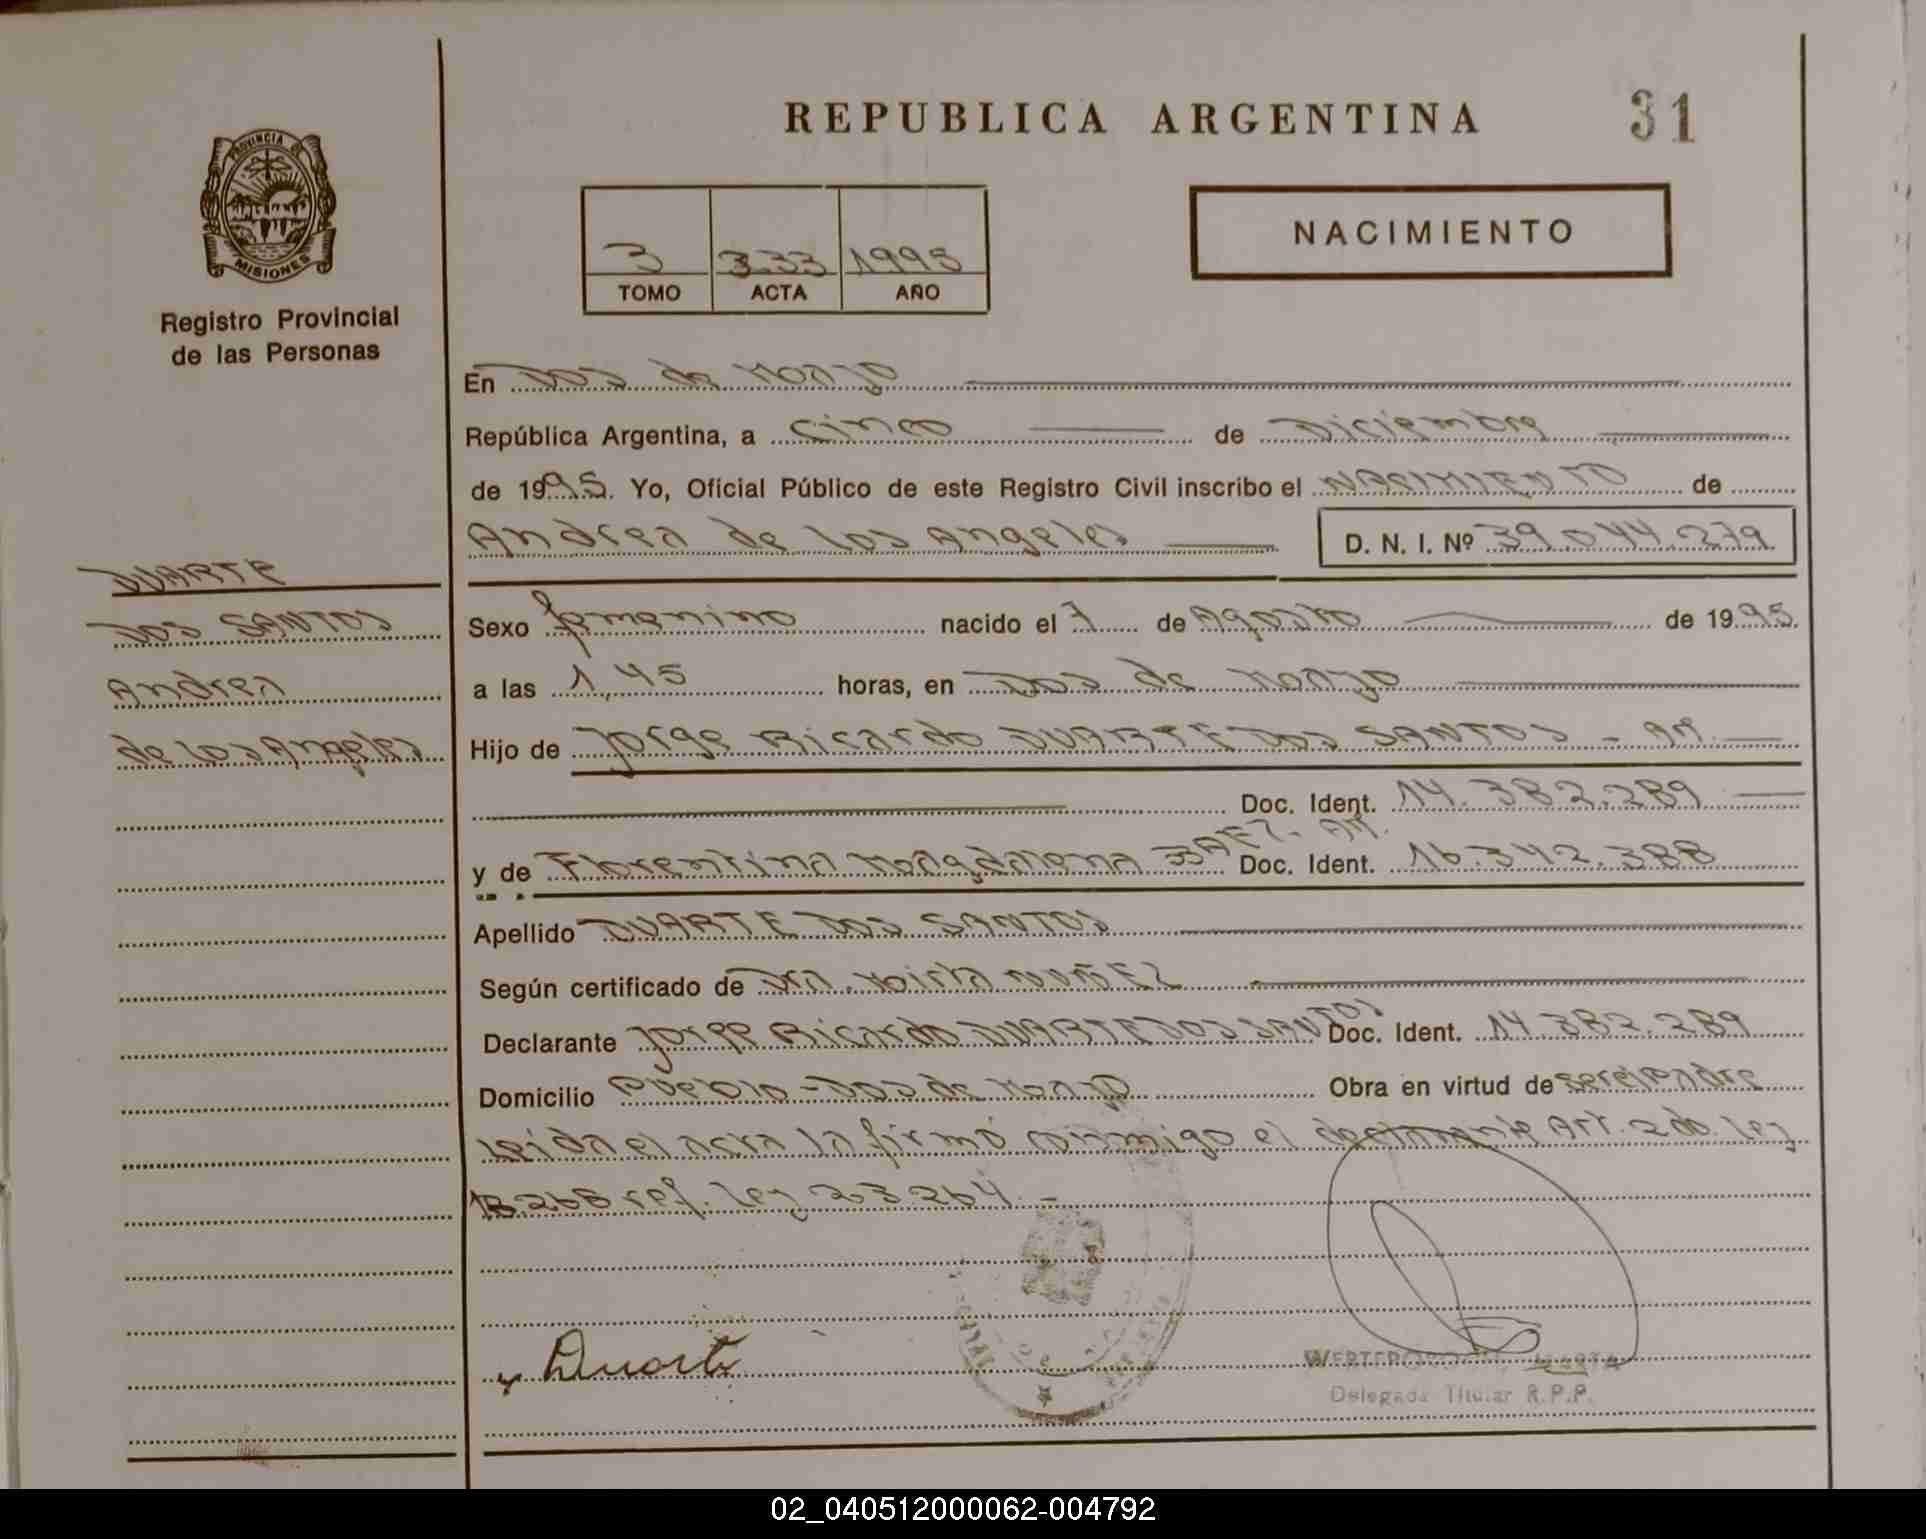 REPUBLICA ARGENTINA 31
PROVINCIA DE
MISIONES
Registro Provincial
de las Personas
3 333 1995
TOMO ACTA AÑO
NACIMIENTO
En Dos de Mayo
República Argentina, a cinco de Diciembre
de 1995. Yo, Oficial Público de este Registro Civil inscribo el NACIMIENTO de
Andrea de los Angeles D. N. I. Nº 39.044.279
DUARTE
DOS SANTOS
Andrea
de los Angeles
Sexo femenino nacido el 7 de Agosto de 1995.
a las 1,45 horas, en Dos de Mayo
Hijo de Jorge Ricardo DUARTE DOS SANTOS - AR.
Doc. Ident. 14.382.289
y de Florentina Magdalena BAEZ. AR. Doc. Ident. 16.342.388
Apellido DUARTE DOS SANTOS
Según certificado de Dra. Mirta NUÑEZ
Declarante Jorge Ricardo DUARTE DOS SANTOS Doc. Ident. 14.382.289
Domicilio Pueblo - Dos de Mayo Obra en virtud de ser el padre
Leida el acta la firmó conmigo el declarante Art. 2do. Ley
18.268 ref. Ley 23.264. -
Duarte
MARTA
Delegada Titular R.P.P.
02_040512000062-004792